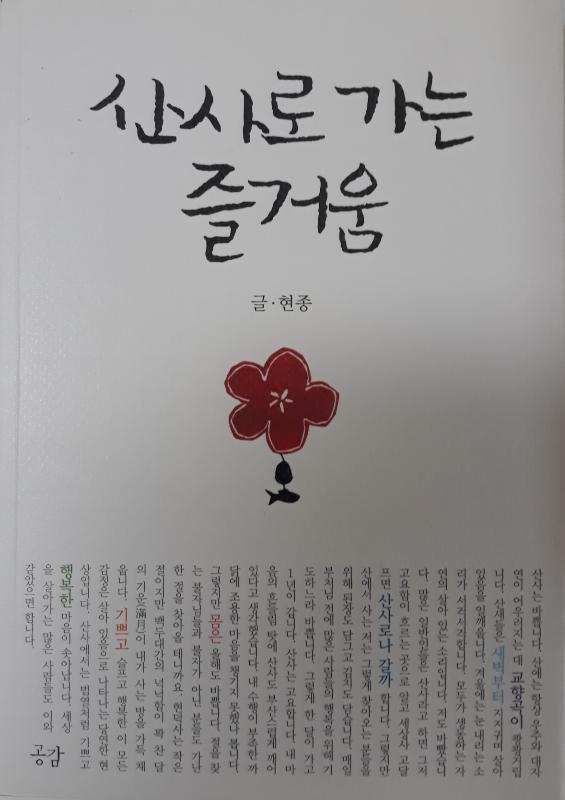 산사로 가는
즐거움
글·현종
산사는 바쁩니다. 산에는 항상 우주와 대자
연이 어우러지는 대 교향곡이 쾅쾅거립
니다. 산새들은 새벽부터 지저귀며 살아
있음을 일깨웁니다. 겨울에는 눈 내리는 소
리가 서걱서걱합니다. 모두가 생동하는 자
연의 살아 있는 소리입니다. 저도 바빴습니
다. 많은 일반인들은 산사라고 하면 그저
고요함이 흐르는 곳으로 알고 세상사 고달
프면 산사로나 갈까 합니다. 그렇지만
산에서 사는 저는 그렇게 찾아오는 분들을
위해 된장도 담그고 김치도 담습니다. 매일
부처님 전에 많은 사람들의 행복을 위해 기
도하느라 바쁩니다. 그렇게 한 달이 가고
1년이 갑니다. 산사는 고요합니다. 내 마
음의 흔들림 탓에 산사도 부산스럽게 깨어
있다고 생각했습니다. 내 수행이 부족한 까
닭에 조용한 마음을 챙기지 못했나 봅니다.
그렇지만 몸은 올해도 바쁩니다. 절을 찾
는 불자님들과 불자가 아닌 분들도 가난
한 정을 찾아올 테니까요. 현덕사는 작은
절이지만 백두대간의 넉넉함이 꽉 찬 달
의 기운滿月이 내가 사는 방을 가득 채
웁니다. 기쁘고 슬프고 행복한 이 모든
감정은 살아 있음으로 나타나는 당연한 현
상입니다. 산사에서는 법열처럼 기쁘고
행복한 마음이 솟아납니다. 세상
을 살아가는 많은 사람들도 이와
같았으면 합니다.
공감